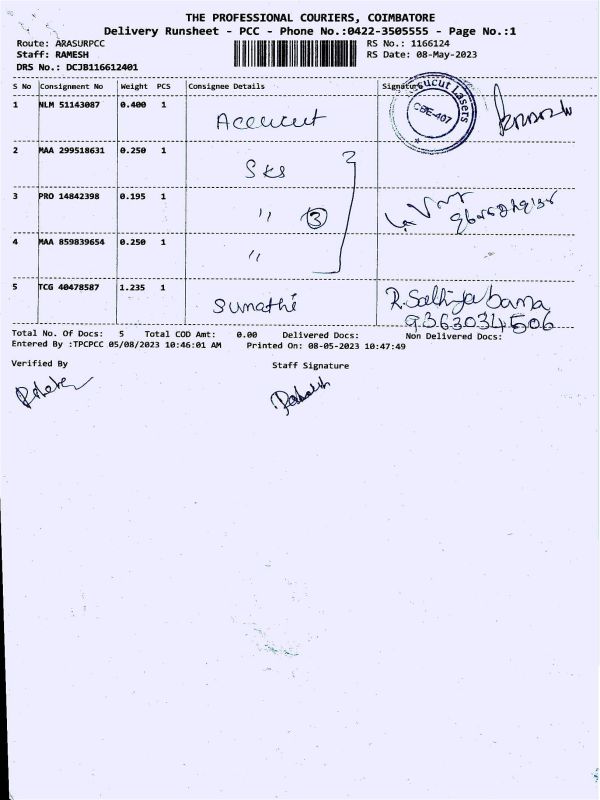 THE PROFESSIONAL COURIERS, COIMBATORE
Delivery Runsheet - PCC - Phone No.:0422-3505555 - Page No.:1
Route: ARASURPCC RS No.: 1166124
Staff: RAMESH RS Date: 08-May-2023
DRS No.: DCJB116612401
S No Consignment No Weight PCS Consignee Details Signature
1 NLM 51143087 0.400 1 Accucut
ucut Lasers
CBE-407
2 MAA 299518631 0.250 1 SKS
3 PRO 14842398 0.195 1 " 3
4 MAA 859839654 0.250 1 "
5 TCG 40478587 1.235 1 Sumathi R.Sathiyabama
9363034506
Total No. Of Docs: 5 Total COD Amt: 0.00 Delivered Docs: Non Delivered Docs:
Entered By :TPCPCC 05/08/2023 10:46:01 AM Printed On: 08-05-2023 10:47:49
Verified By Staff Signature